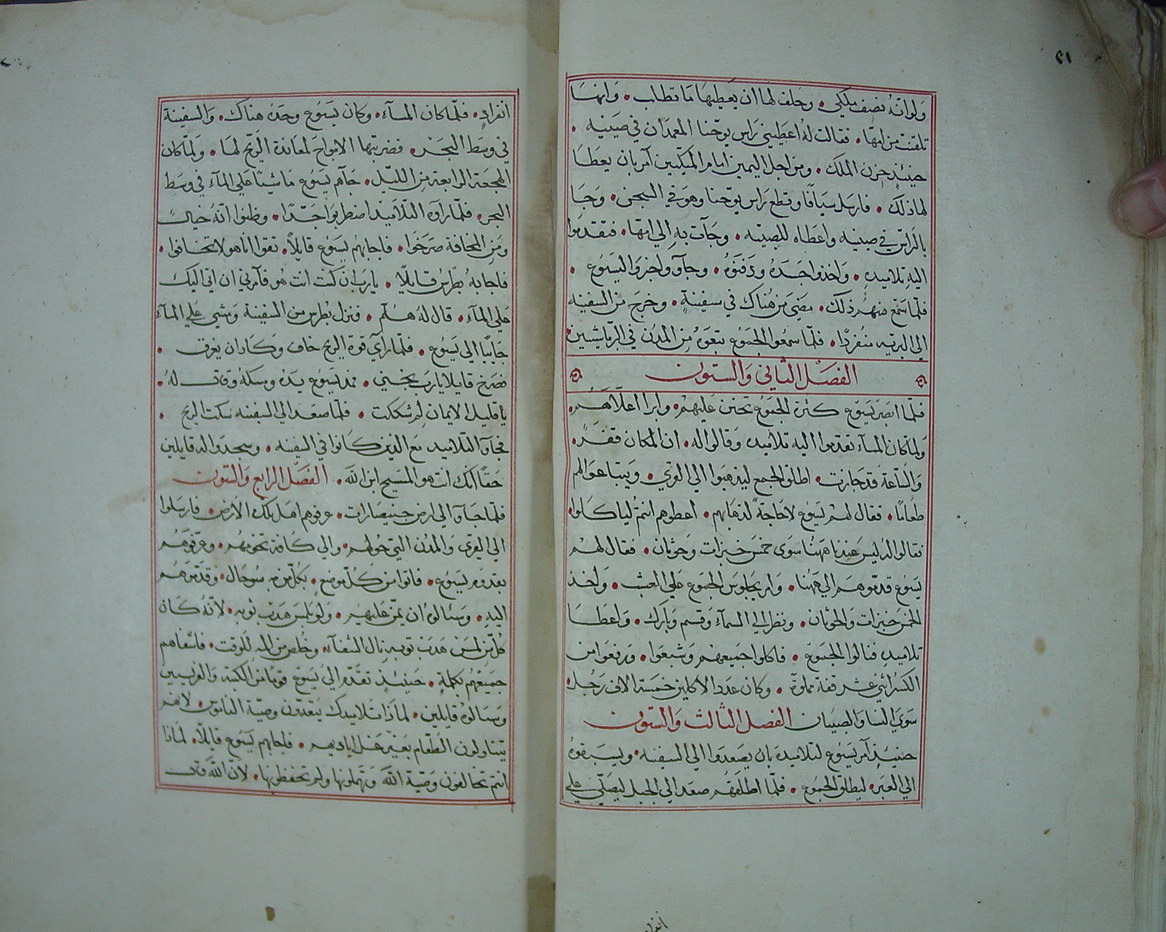 ٢١
ولو انه نصف ملكي وحلف لها ان يعطيها ما تطلب وانها
تلقنت من امها فقالت له اعطيني راس يوحنا المعمدان في صينيه
حينيذ حزن الملك ومن اجل اليمين امر بان يعطا
لها ذلك فارسل سيافا وقطع راس يوحنا وهو في السجن وجا
بالراس في صينيه واعطاه للصبيه وجآت به الي امها فتقدموا
اليه تلاميده واخدوا جسده ودفنوه وجاوا واخبروا ليسوع
فلما سمع منهم ذلك مضي من هناك في سفينة وخرج من السفينه
الي البريه منفردًا فلما سمعوا الجموع تبعوه من المدن
الفصل الثاني والستون
فلما ابصر يسوع كثرة الجموع تحنن عليهم وابرا اعلآهم
ولما كان المسآ تقدموا اليه تلاميده وقالوا له ان المكان قفر
والساعة قد جازت اطلق الجمع ليدهبوا الي القري ويبتاعوا لهم
طعامًا فقال لهم يسوع لا حاجة لدهابهم اعطوهم انتم لياكلوا
فقالوا له ليس عندنا ههنا سوي خمس خبزات وحوتان فقال لهم
يسوع قدموهم الي ههنا وامر بجلوس الجموع علي العشب واخد
الخمس خبزات والحوتان ونظر الي السمآ وقسم وبارك واعطا
تلاميده فنالوا الجموع فاكلوا جميعهم وشبعوا ورفعوا من
الكسر اثني عشر قفة مملوة وكان عدد الاكلين خمسة الاف رجل
سوي النسا والصبيان الفصل الثالث والستون
حينيد امر يسوع لتلاميده بان يصعدوا الي السفينه ويسبقوه
الي العبر ليطلق الجموع فلما اطلقهم صعد الي الجبل ليصلي علي
انفراد
انفرادٍ فلما كان المسآ وكان يسوع وحده هناك والسفينة
في وسط البحر فضربتها الامواج لمعاندة الريح لها ولما كان
الهجعة الرابعة من الليل جآهم يسوع ماشيًا علي المآء في وسط
البحر فلما راوه التلاميد اضطربوا جدًا وظنوا انه خيال
ومن المخافة صرخوا فاجابهم يسوع قايلاً تقوا انا هو لا تخافوا
فاجابه بطرس قايلاً يارب ان كنت انت هو فآمرني ان اتي اليك
علي المآء قال له هلم فنزل بطرس من السفينة ومشي علي المآء
جايًا الي يسوع فلما راي قوة الريح خاف وكاد ان يغرق
فصرخ قايلا يارب نجيني فمد يسوع يده ومسكه وقال له
يا قليل الايمان لم شككت فلما صعد الي السفينه سكت الريح
فجاوا التلاميد مع الذين كانوا في السفينه وسجدوا له قايلين
حقًا انك انت هو المسيح ابن الله الفصل الرابع والستون
فلما جاوا الي ارض جنيصارات عرفوهم اهل تلك الارض فارسلوا
الي القري والمدن التي حولهم والي كافة تخومهم وعرفوهم
بقدوم يسوع فاتوا من كل موضع بكل من به سو حال وقدموهم
اليه وسالوه ان يمن عليهم ولو بلمس هدب توبه لانه كان
كل من لمس هدب توبه ينال الشفآء ويخلص من المه للوقت فاشفاهم
جميعهم بكلمة حينيذ تقدم الي يسوع قومًا من الكتبه والفريسيين
وسالوه قايلين لماذا تلاميدك يتعدون وصية الناموس لانهم
يتناولون الطعام بغير غسل اياديهم فاجابهم يسوع قايلاً لماذا
انتم تخالفون وصية الله وتهملونها ولم تحفظوها لان الله قال